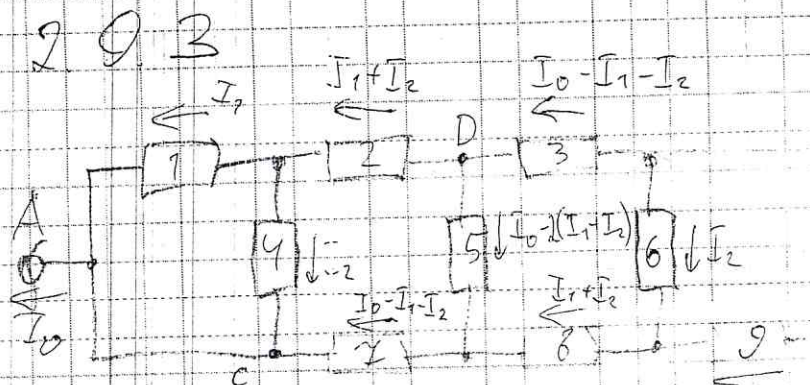 293
I₁
I₁+I₂
I₀-I₁-I₂
D
1
2
3
A
4
5
I₀-2(I₁-I₂)
6
I₂
I₀
I₀-I₁-I₂
I₁+I₂
C
7
8
9